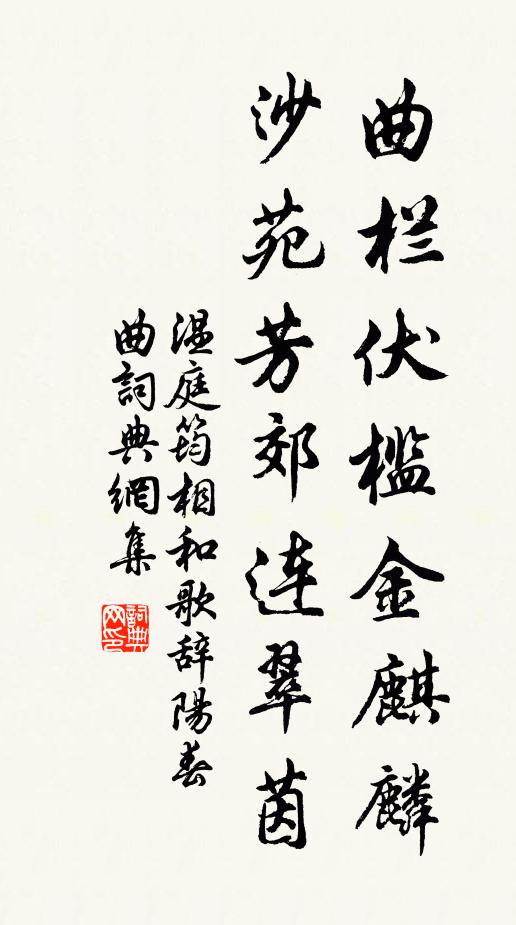 曲栏伏槛金麒麟
沙苑芳郊连翠茵
温庭筠相和歌辞陽春
曲詞典網集
詞典网印